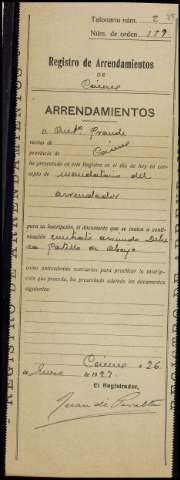 Talonario núm. 2
Núm. de orden 119
Registro de Arrendamientos
DE
Cáceres
ARRENDAMIENTOS
D. Antº Grande
vecino de
provincia de Cáceres
ha presentado en este Registro en el día de hoy en con-
cepto de mandatario del
arrendador
para su inscripción, el documento que se indica a conti-
nuación contrato arriendo
como antecedentes necesarios para practicar la inscrip-
ción que procede, ha presentado además los documentos
siguientes:
Cáceres a 26
de Enero de 1927.
El Registrador,
Juan de Peralta